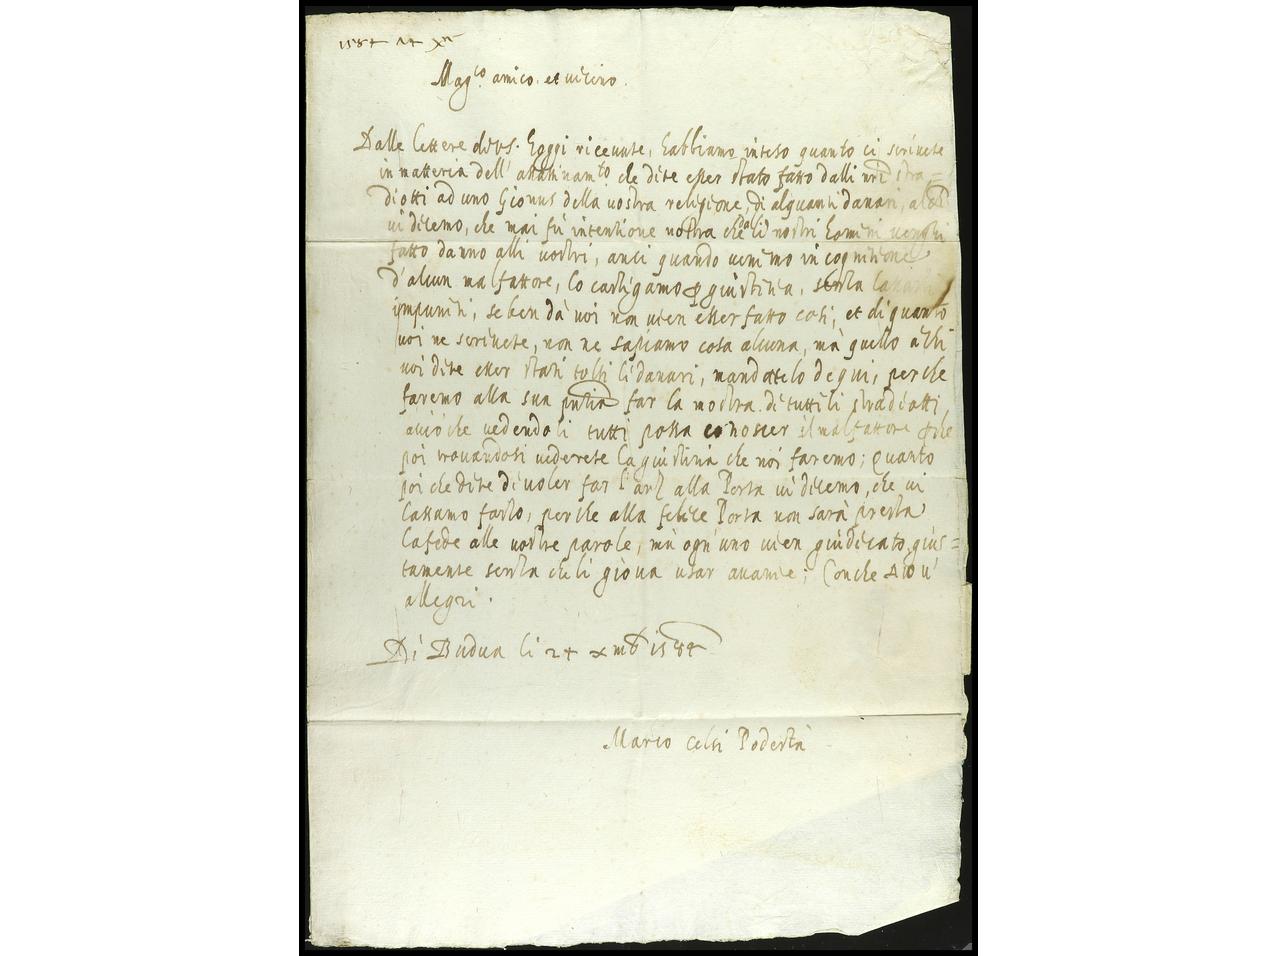 1584 24 Xm
Mag.co amico et vicino.
Dalle lettere di vs. hoggi riceuute, habbiamo inteso quanto ci scriuete
in matteria dell' assassinam.to che dite esser stato fatto dalli nri stra=
diotti ad uno della vostra religione, di alquanti danari, al che
ui dicemo, che mai fù intentione nostra che dali nostri homini uenghi
fatto danno alli uostri, anci quando uenimo in cognitione
d'alcun malfattore, lo castigamo p giustitia, senza lassarli
impuniti, se ben dà uoi non uien esser fatto cosi, et di quanto
uoi ne scriuete, non ne sapiamo cosa alcuna, mà quello à chi
uoi dite esser stati tolti li danari, mandatelo de qui, perche
faremo alla sua pntia far la mostra di tutti li stradiotti,
acciò che uedendoli tutti possa conoscer il malfattore, che
poi trouandosi uederete la giustitia che noi faremo; Quanto
poi che dite di uoler far l'arz alla Porta ui dicemo, che ui
lassamo farlo, perche alla felice Porta non sarà presta
la fede alle uostre parole, mà ogn'uno uien giudicato gius=
tamente senza che li gioua usar auanie; Con che Dio u'
allegri.
Di Budua li 24 xmb 1584
Marco Celsi Podestà